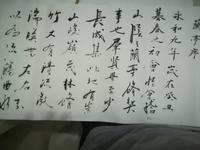 蘭亭序
永和九年歲在癸丑
暮春之初會于會稽
山陰之蘭亭修禊
事也羣賢畢至少
長咸集此地有崇
山峻領茂林脩
竹又有清流激
湍暎帶左右引
以為流觴曲水